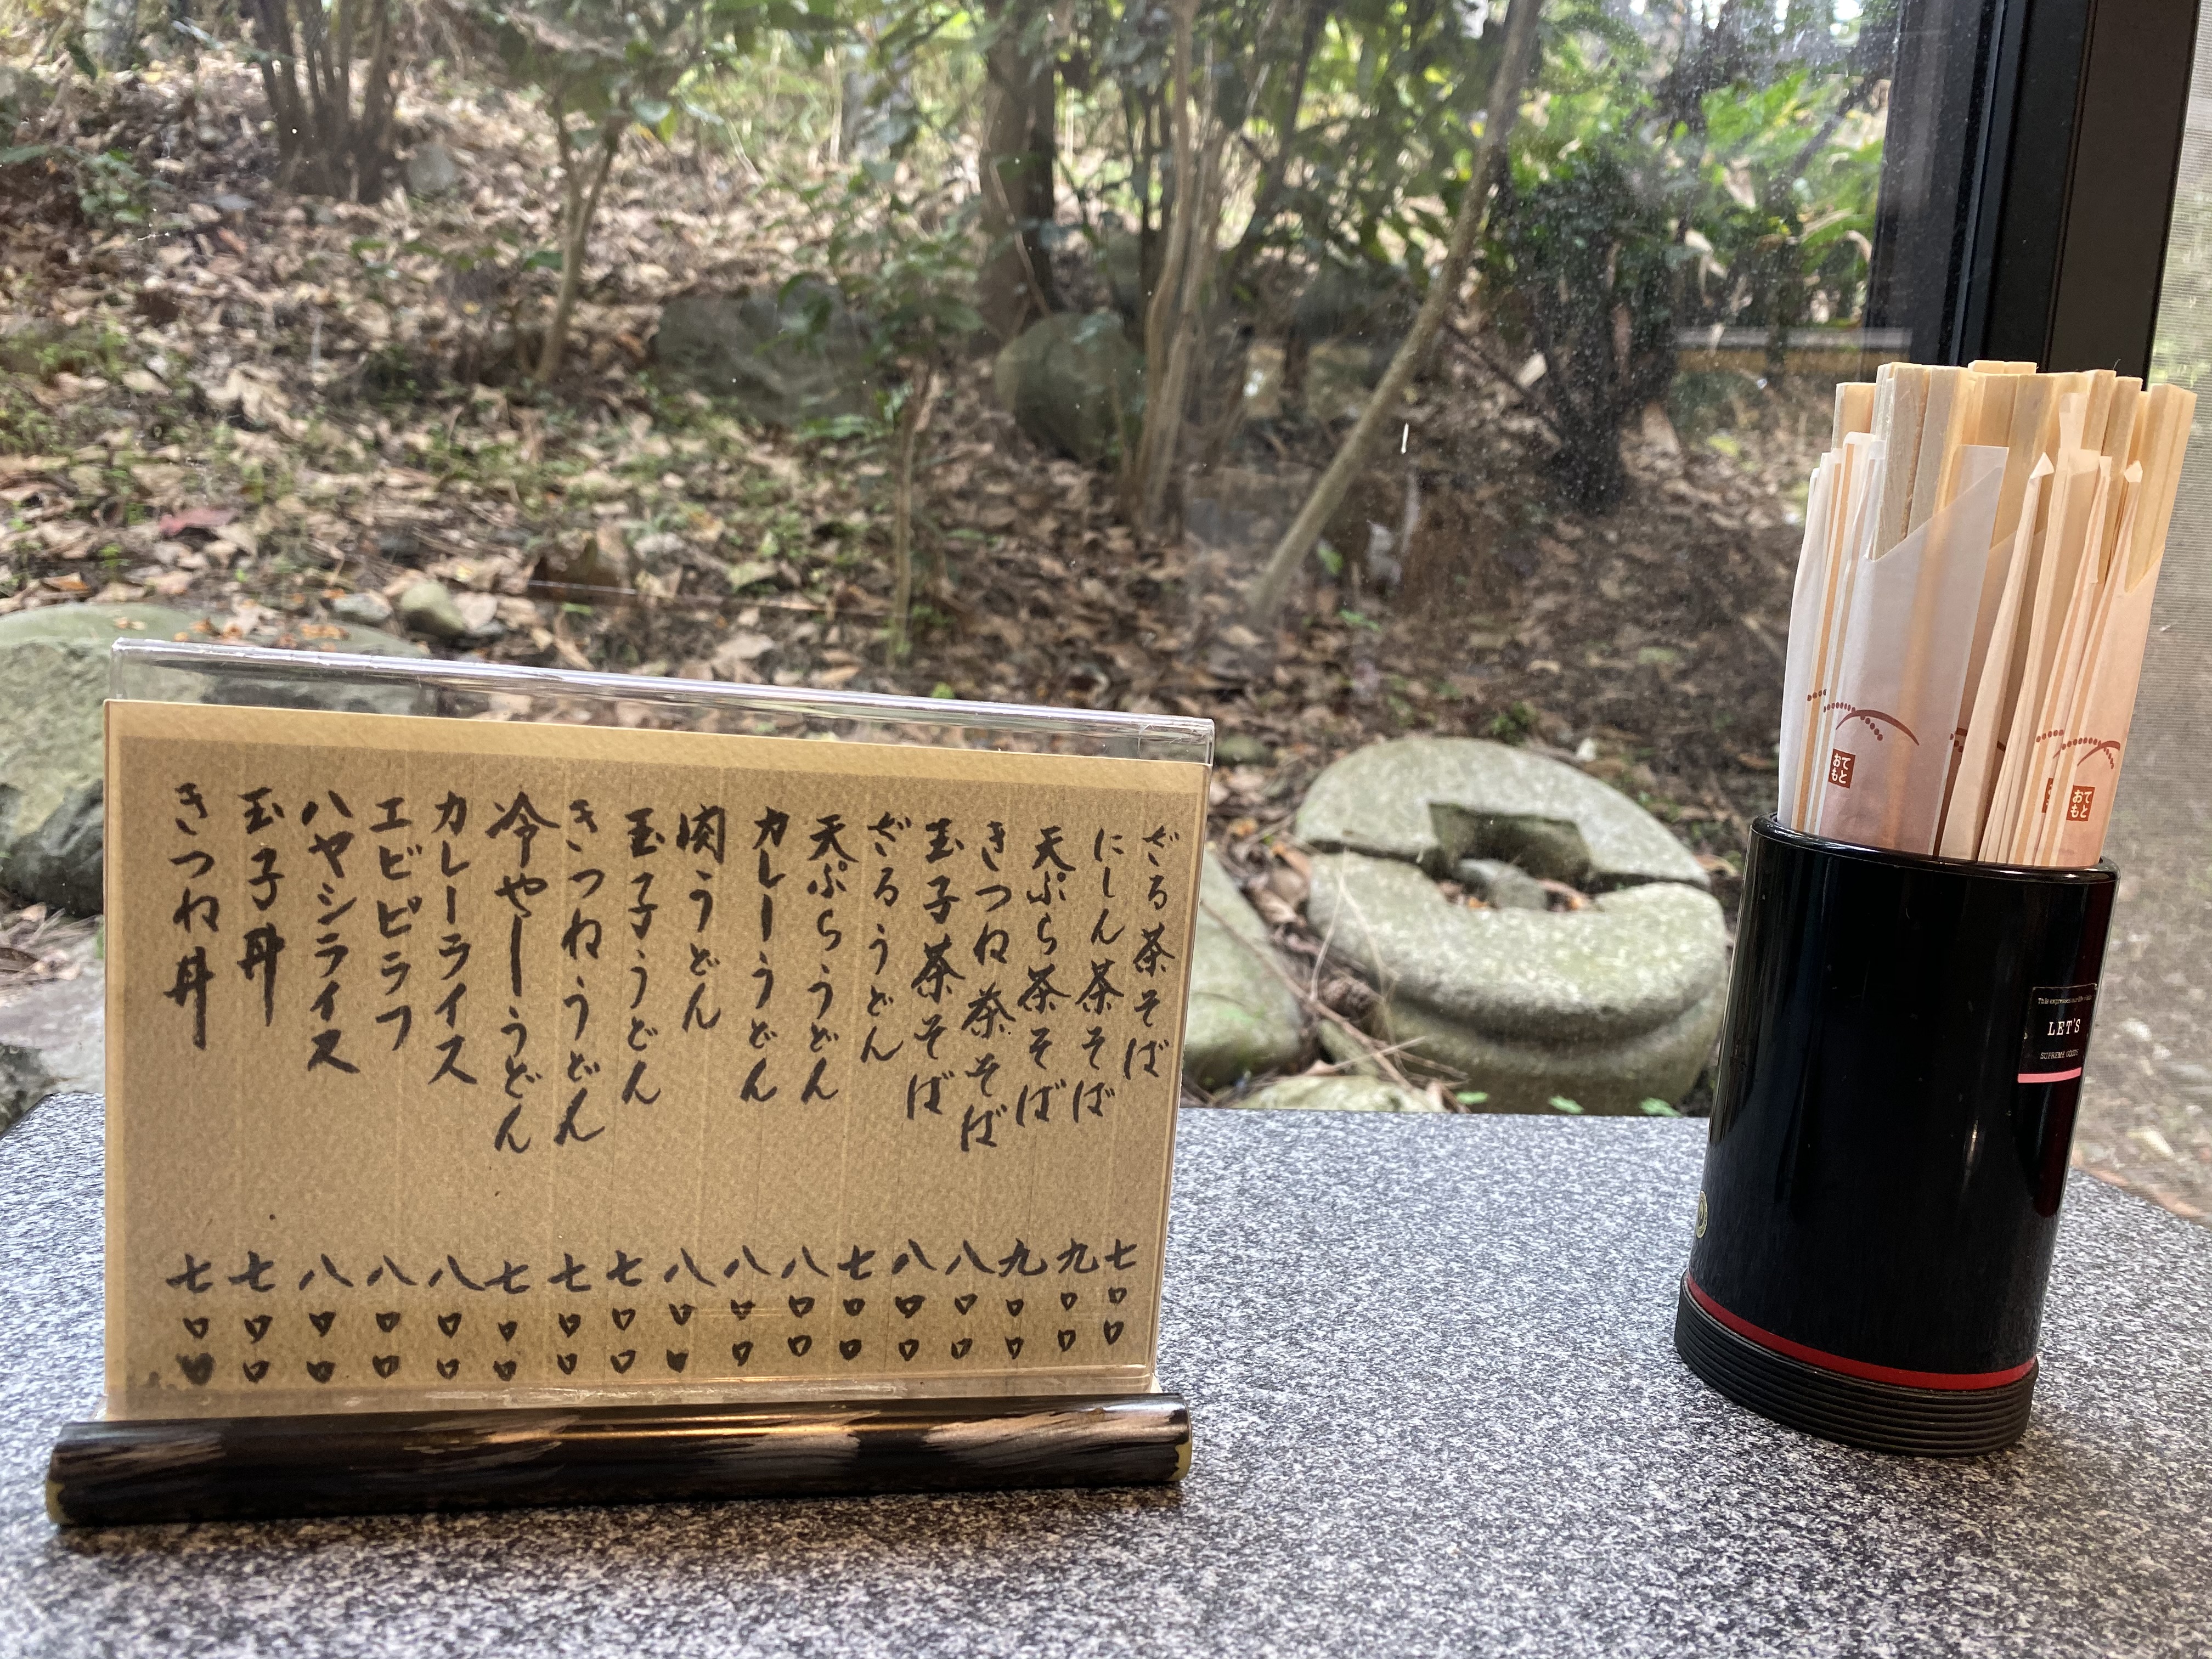 ざる茶そば 七〇〇
にしん茶そば 九〇〇
天ぷら茶そば 九〇〇
きつね茶そば 八〇〇
玉子茶そば 八〇〇
ざるうどん 七〇〇
天ぷらうどん 八〇〇
カレーうどん 八〇〇
肉うどん 八〇〇
玉子うどん 七〇〇
きつねうどん 七〇〇
冷やしうどん 七〇〇
カレーライス 八〇〇
エビピラフ 八〇〇
ハヤシライス 八〇〇
玉子丼 七〇〇
きつね丼 七〇〇
おて
もと
おて
もと
LET'S
SUPREME GOODS